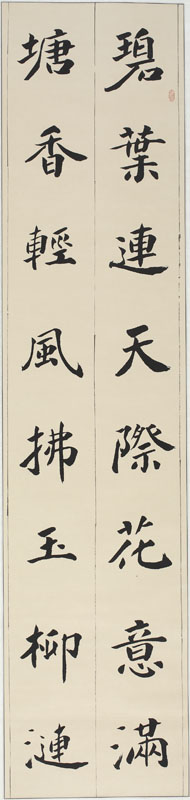 碧葉連天際花意滿
塘香輕風拂玉柳漣